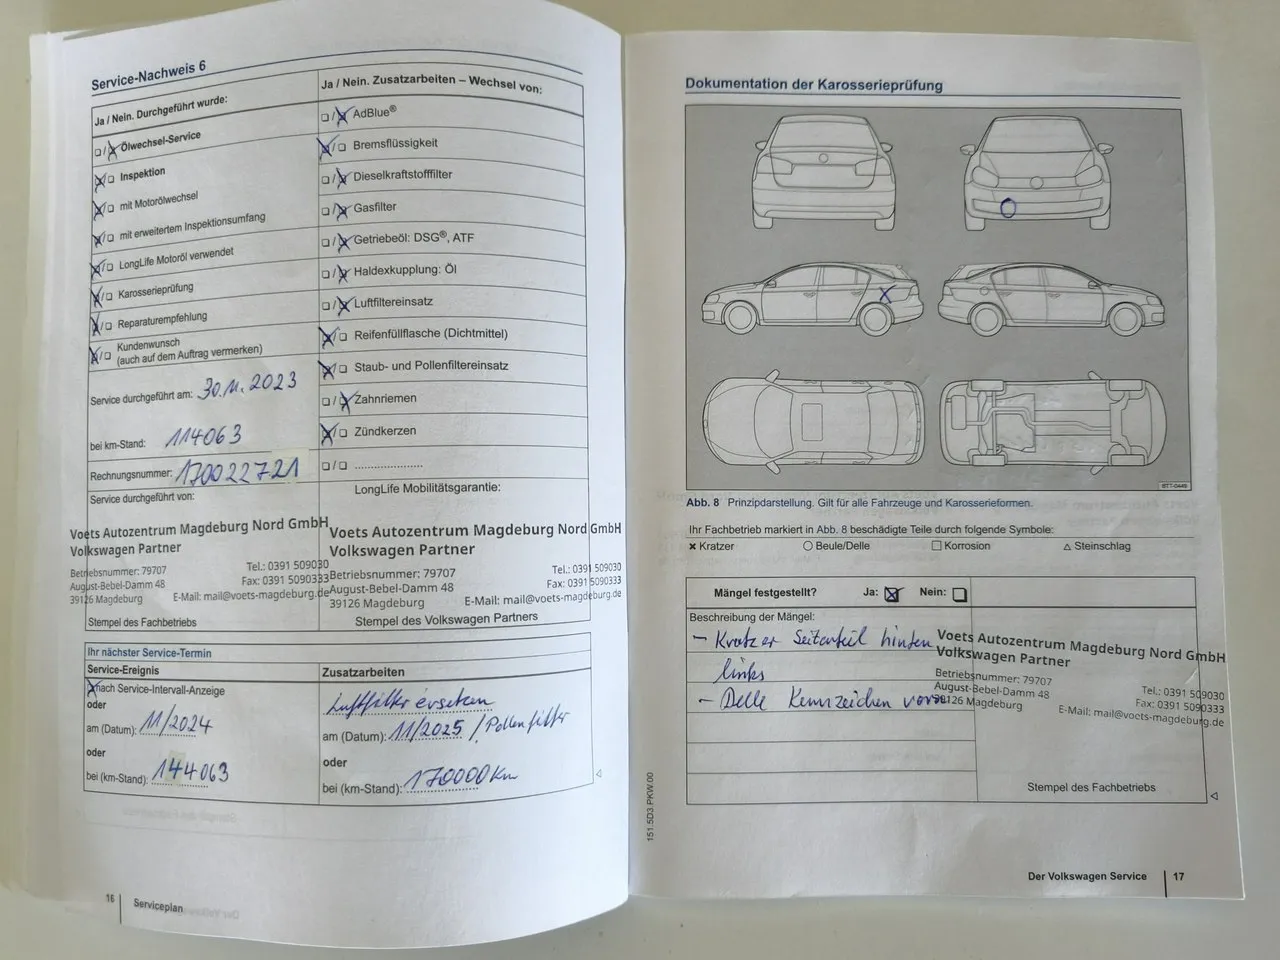 Service-Nachweis 6
Ja / Nein. Durchgeführt wurde:
☐/☒ Ölwechsel-Service
☒/☐ Inspektion
☒/☐ mit Motorölwechsel
☒/☐ mit erweitertem Inspektionsumfang
☒/☐ LongLife Motoröl verwendet
☒/☐ Karosserieprüfung
☒/☐ Reparaturempfehlung
☒/☐ Kundenwunsch
(auch auf dem Auftrag vermerken)
Service durchgeführt am: 30.11.2023
bei km-Stand: 114063
Rechnungsnummer: 170022721
Service durchgeführt von:
Voets Autozentrum Magdeburg Nord GmbH
Volkswagen Partner
Betriebsnummer: 79707 Tel.: 0391 509030
August-Bebel-Damm 48 Fax: 0391 5090333
39126 Magdeburg E-Mail: mail@voets-magdeburg.de
Stempel des Fachbetriebs
Ja / Nein. Zusatzarbeiten – Wechsel von:
☐/☒ AdBlue®
☒/☐ Bremsflüssigkeit
☐/☒ Dieselkraftstofffilter
☐/☒ Gasfilter
☐/☒ Getriebeöl: DSG®, ATF
☐/☒ Haldexkupplung: Öl
☐/☒ Luftfiltereinsatz
☒/☐ Reifenfüllflasche (Dichtmittel)
☒/☐ Staub- und Pollenfiltereinsatz
☐/☒ Zahnriemen
☒/☐ Zündkerzen
☐/☐ ......................
LongLife Mobilitätsgarantie:
Voets Autozentrum Magdeburg Nord GmbH
Volkswagen Partner
Betriebsnummer: 79707 Tel.: 0391 509030
August-Bebel-Damm 48 Fax: 0391 5090333
39126 Magdeburg E-Mail: mail@voets-magdeburg.de
Stempel des Volkswagen Partners
Ihr nächster Service-Termin
Service-Ereignis
☒ nach Service-Intervall-Anzeige
oder
am (Datum): 11/2024
oder
bei (km-Stand): 144063
Zusatzarbeiten
Luftfilter ersetzen
am (Datum): 11/2025 / Pollenfilter
oder
bei (km-Stand): 170000 Km
16 Serviceplan
Dokumentation der Karosserieprüfung
BTT-0449
Abb. 8 Prinzipdarstellung. Gilt für alle Fahrzeuge und Karosserieformen.
Ihr Fachbetrieb markiert in Abb. 8 beschädigte Teile durch folgende Symbole:
✖ Kratzer ○ Beule/Delle □ Korrosion △ Steinschlag
Mängel festgestellt? Ja: ☒ Nein: ☐
Beschreibung der Mängel:
– Kratzer Seitenteil hinten
links
– Delle Kennzeichen vorne
Voets Autozentrum Magdeburg Nord GmbH
Volkswagen Partner
Betriebsnummer: 79707 Tel.: 0391 509030
August-Bebel-Damm 48 Fax: 0391 5090333
39126 Magdeburg E-Mail: mail@voets-magdeburg.de
Stempel des Fachbetriebs
151.5D3.PKW.00
Der Volkswagen Service 17